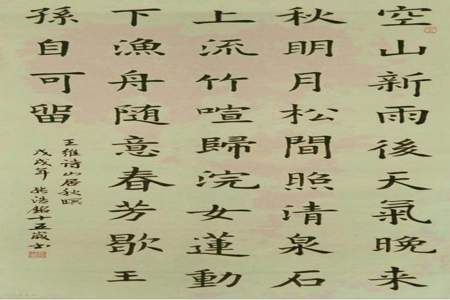 空山新雨後天氣晚来
秋明月松間照清泉石
上流竹喧歸浣女蓮動
下漁舟随意春芳歇王
孫自可留
王维诗山居秋暝
戊戌年 浩銘十五歲书